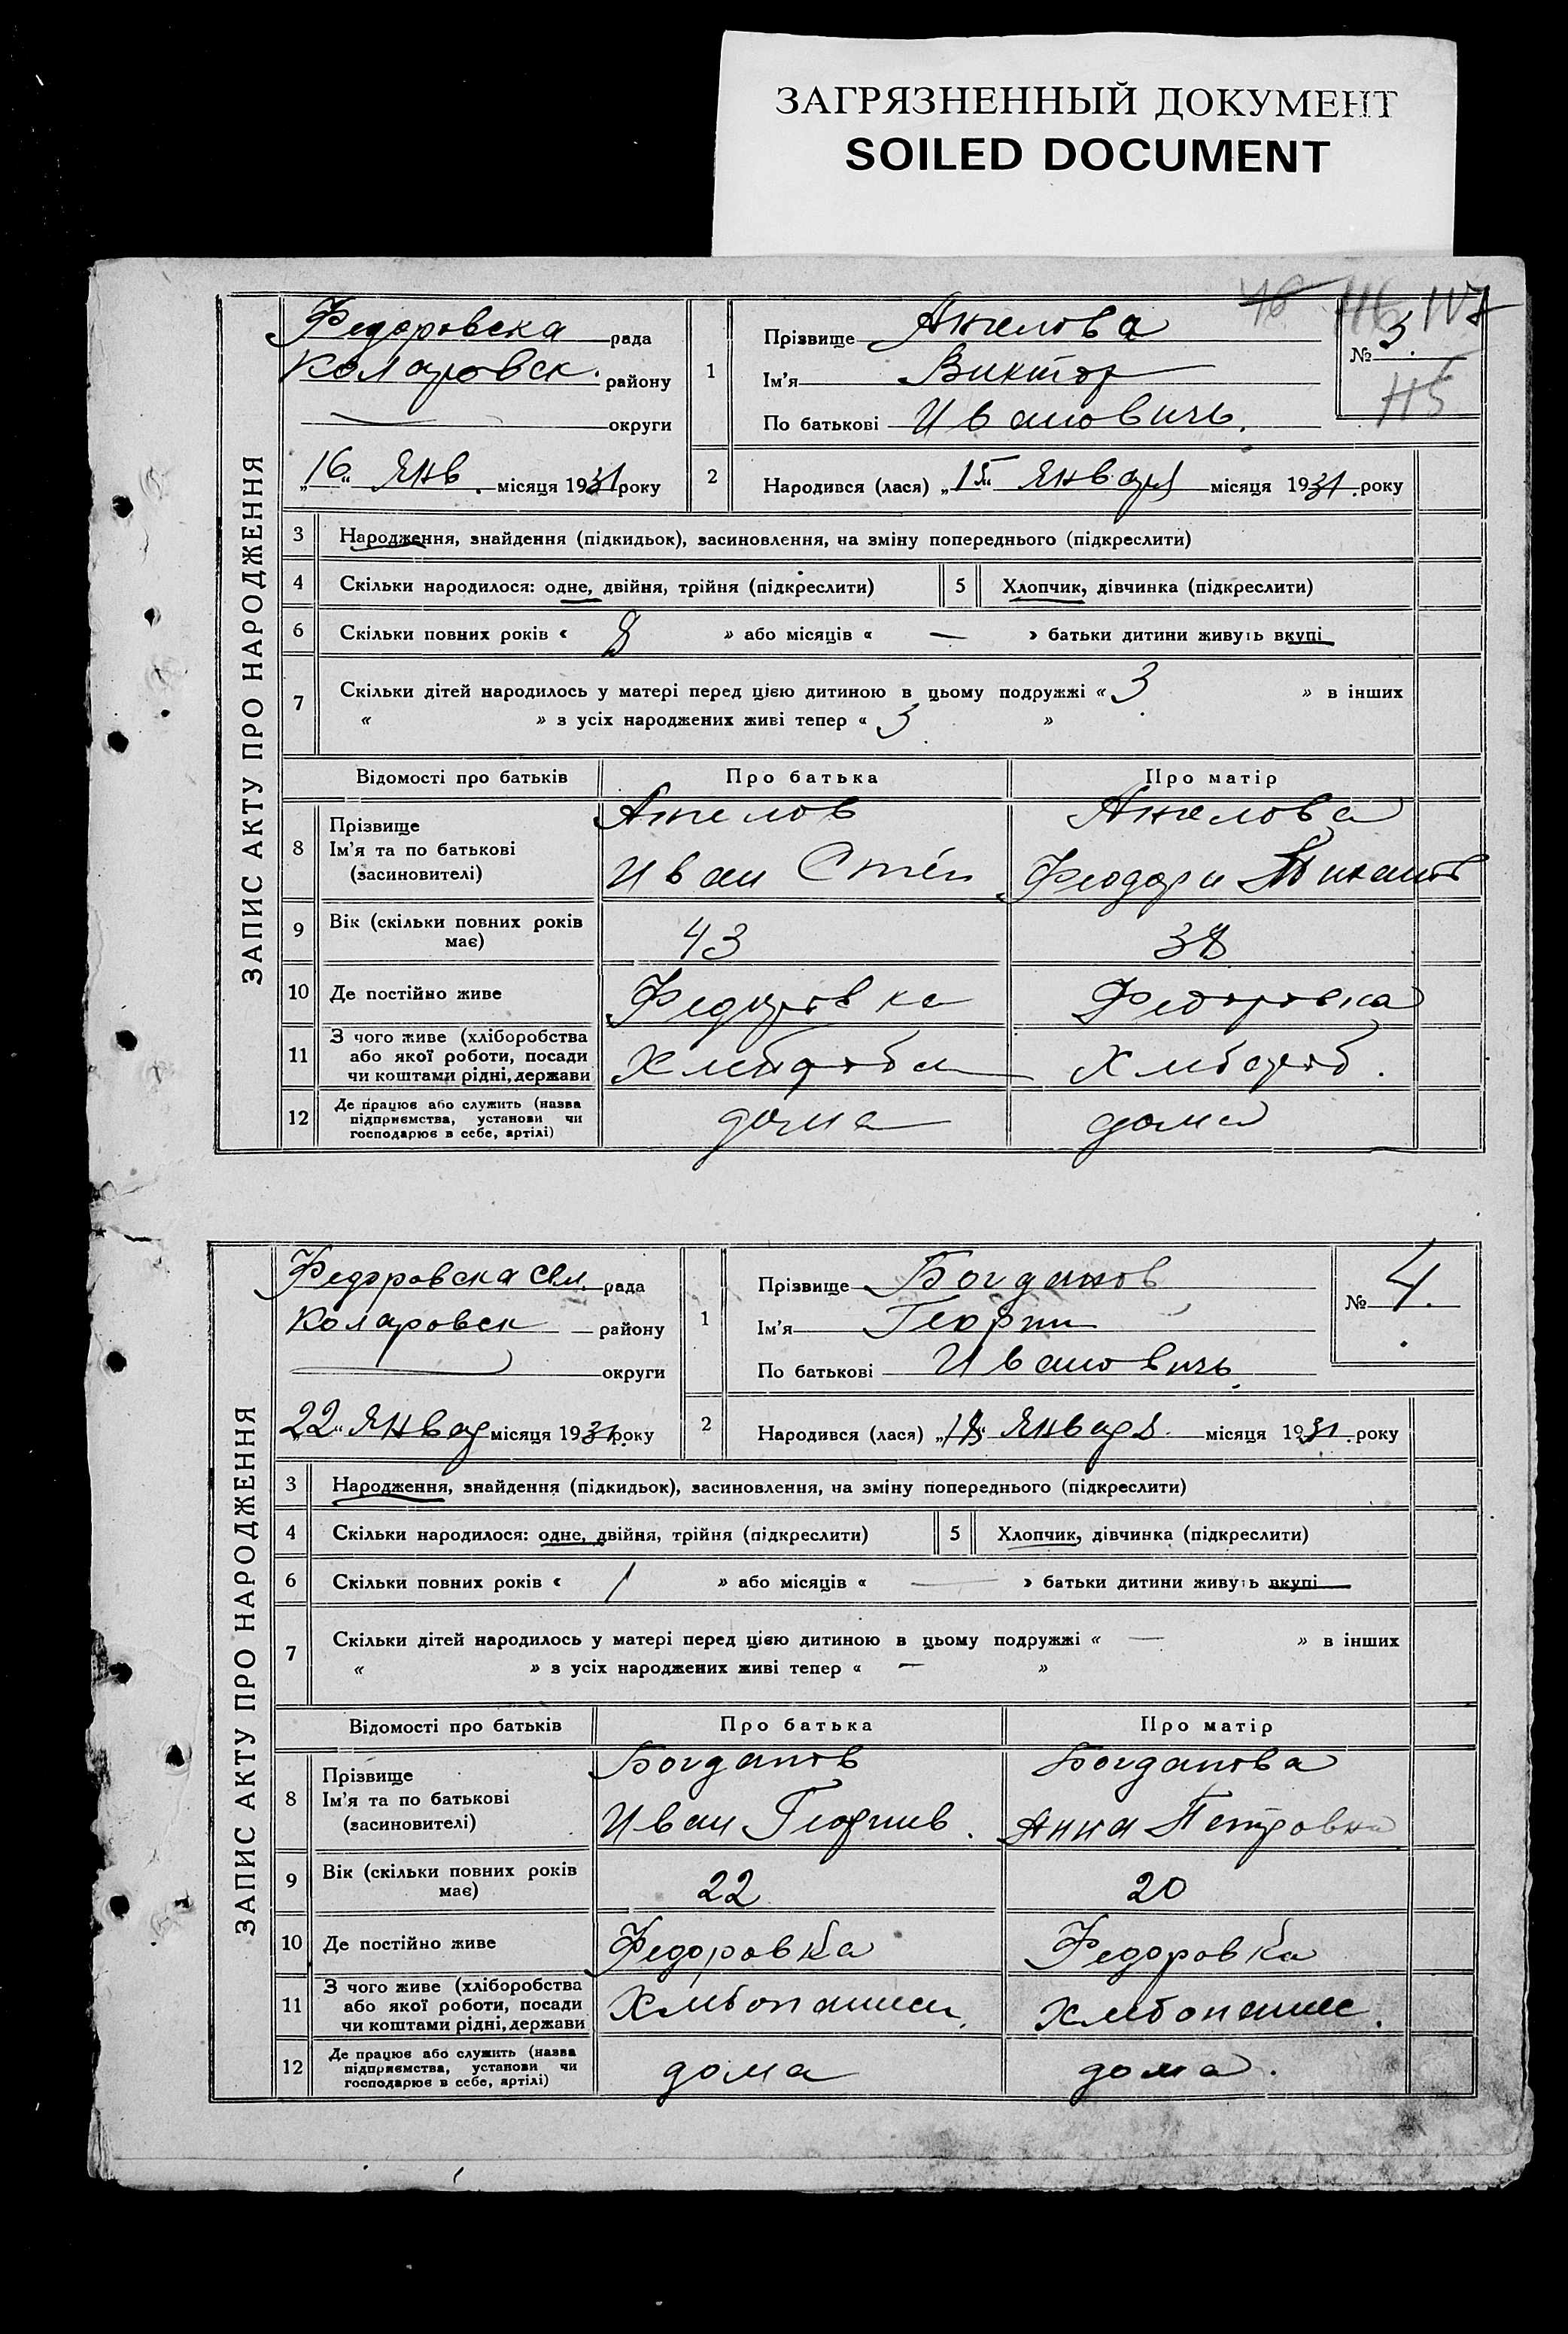 ЗАГРЯЗНЕННЫЙ ДОКУМЕНТ
SOILED DOCUMENT
ЗАПИС АКТУ ПРО НАРОДЖЕННЯ
Федоровска рада
Коларовск. району
округи
„16“ Янв. місяця 1931 року
1
Прізвище Анелова
Ім'я Виктор
По батькові Ивановичь.
№ 3.
115
2
Народився (лася) „15“ Января місяця 1931. року
3 Народження, знайдення (підкидьок), засиновлення, на зміну попереднього (підкреслити)
4 Скільки народилося: одне, двійня, трійня (підкреслити) 5 Хлопчик, дівчинка (підкреслити)
6 Скільки повних років « 8 » або місяців « — » батьки дитини живуть вкупі
7 Скільки дітей народилось у матері перед цією дитиною в цьому подружжі « 3 » в інших
« » з усіх народжених живі тепер « 3 »
Відомості про батьків Про батька Про матір
8 Прізвище
Ім'я та по батькові
(засиновителі)
Анелов
Иван Степ
Анелова
Феодори
9 Вік (скільки повних років має) 43 38
10 Де постійно живе Федоровка Федоровка
11 З чого живе (хліборобства
або якої роботи, посади
чи коштами рідні, держави
Хлебороб.
12 Де працює або служить (назва
підприємства, установи чи
господарює в себе, артілі)
дома дома
ЗАПИС АКТУ ПРО НАРОДЖЕННЯ
Федоровска Сел. рада
Коларовск району
округи
„22“ Январ місяця 1931. року
1
Прізвище Богданов
Ім'я Георги
По батькові Ивановичь
№ 4.
2
Народився (лася) „18“ Январь місяця 1931. року
3 Народження, знайдення (підкидьок), засиновлення, на зміну попереднього (підкреслити)
4 Скільки народилося: одне, двійня, трійня (підкреслити) 5 Хлопчик, дівчинка (підкреслити)
6 Скільки повних років « 1 » або місяців « — » батьки дитини живуть вкупі
7 Скільки дітей народилось у матері перед цією дитиною в цьому подружжі « — » в інших
« » з усіх народжених живі тепер « — »
Відомості про батьків Про батька Про матір
8 Прізвище
Ім'я та по батькові
(засиновителі)
Богданов
Иван Георгиев.
Богданова
Анна Петровна
9 Вік (скільки повних років має) 22 20
10 Де постійно живе Федоровка Федоровка
11 З чого живе (хліборобства
або якої роботи, посади
чи коштами рідні, держави
12 Де працює або служить (назва
підприємства, установи чи
господарює в себе, артілі)
дома дома.